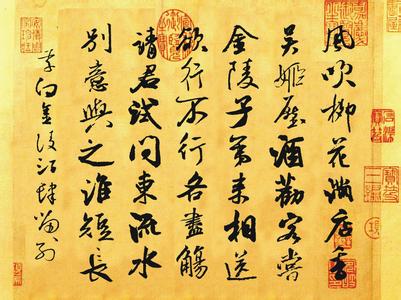 風吹柳花滿店香
吳姬壓酒勸客嘗
金陵子弟来相送
欲行不行各盡觴
請君試問東流水
別意與之誰短長
李白金陵酒肆留別